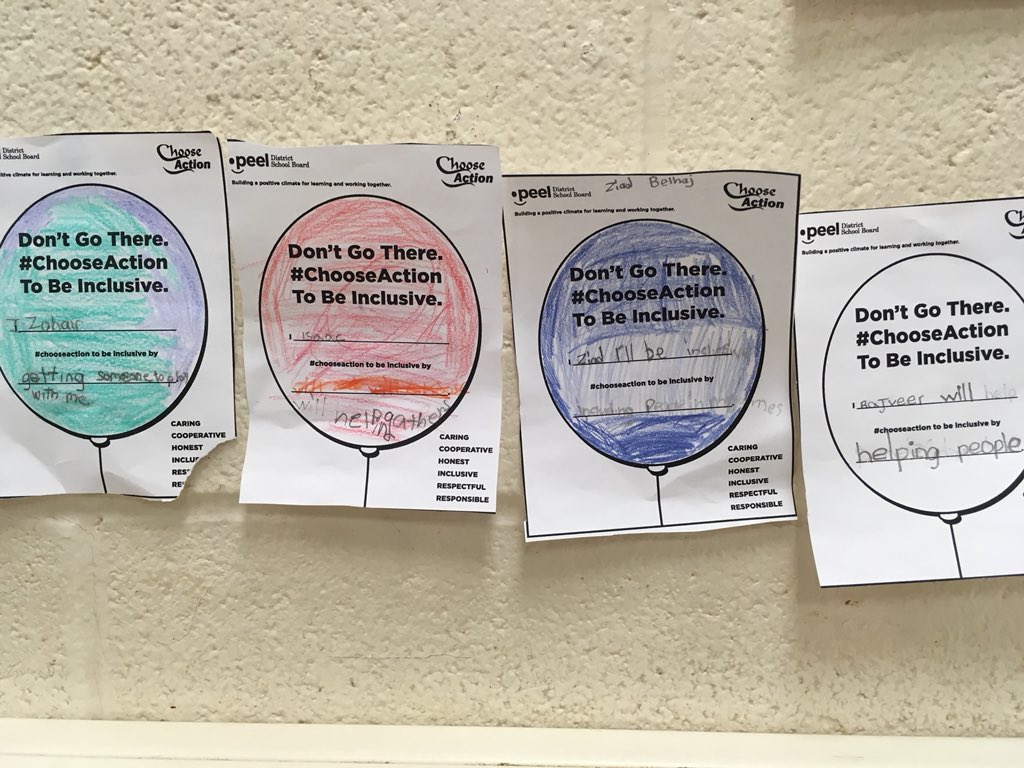 District
School Board
Choose
Action
itive climate for learning and working together.
Don't Go There.
#ChooseAction
To Be Inclusive.
I Zobair
#chooseaction to be inclusive by
getting someone to play
with me
CARING
COOPERATIVE
HONEST
INCLUS
RES
RE
peel District
School Board
Choose
Action
Building a positive climate for learning and working together.
Don't Go There.
#ChooseAction
To Be Inclusive.
I Isaac
#chooseaction to be inclusive by
will
CARING
COOPERATIVE
HONEST
INCLUSIVE
RESPECTFUL
RESPONSIBLE
peel District
School Board
Ziad Belhaj
Choose
Action
Building a positive climate for learning and working together.
Don't Go There.
#ChooseAction
To Be Inclusive.
I Ziad I'll be
#chooseaction to be inclusive by
Including People in
CARING
COOPERATIVE
HONEST
INCLUSIVE
RESPECTFUL
RESPONSIBLE
peel District
School Board
Ch
Building a positive climate for learning and working together.
Don't Go There.
#ChooseAction
To Be Inclusive.
I Rajveer will help
#chooseaction to be inclusive by
helping people